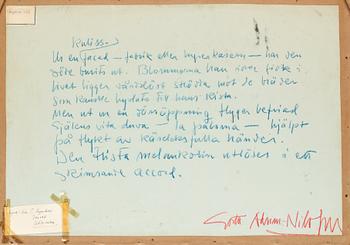 Kuliss.
Ur en facad – fabrik eller hyreskasern – har den
döde burits ut. Blommorna han icke fick i
livet ligger värdslöst strödda mot de bräder
som kanske hyvlats för hans kista.
Men ut ur en dörröppning flyger befriad
själens vita duva – la paloma – hjälpt
på flykt av kärleksfulla händer.
Den trista melankolin utlöses i ett
skimrande accord.
Gösta Adrian-Nilsson